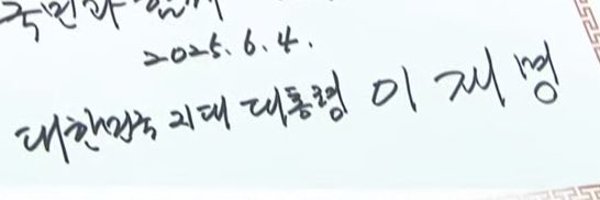 국민과 함께
2025. 6. 4.
대한민국 21대 대통령 이재명